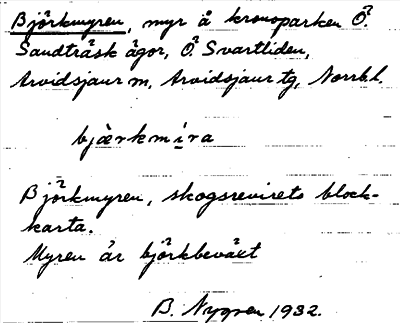 Björkmyren, myr å kronoparken Ö.
Sandträsk ägor, Ö. Svartliden,
Arvidsjaur m, Arvidsjaur tg, Norrb.l.
bjærkmira
Björkmyren, skogsrevirets block-
karta.
Myren är björkbeväxt
B. Nygren 1932.